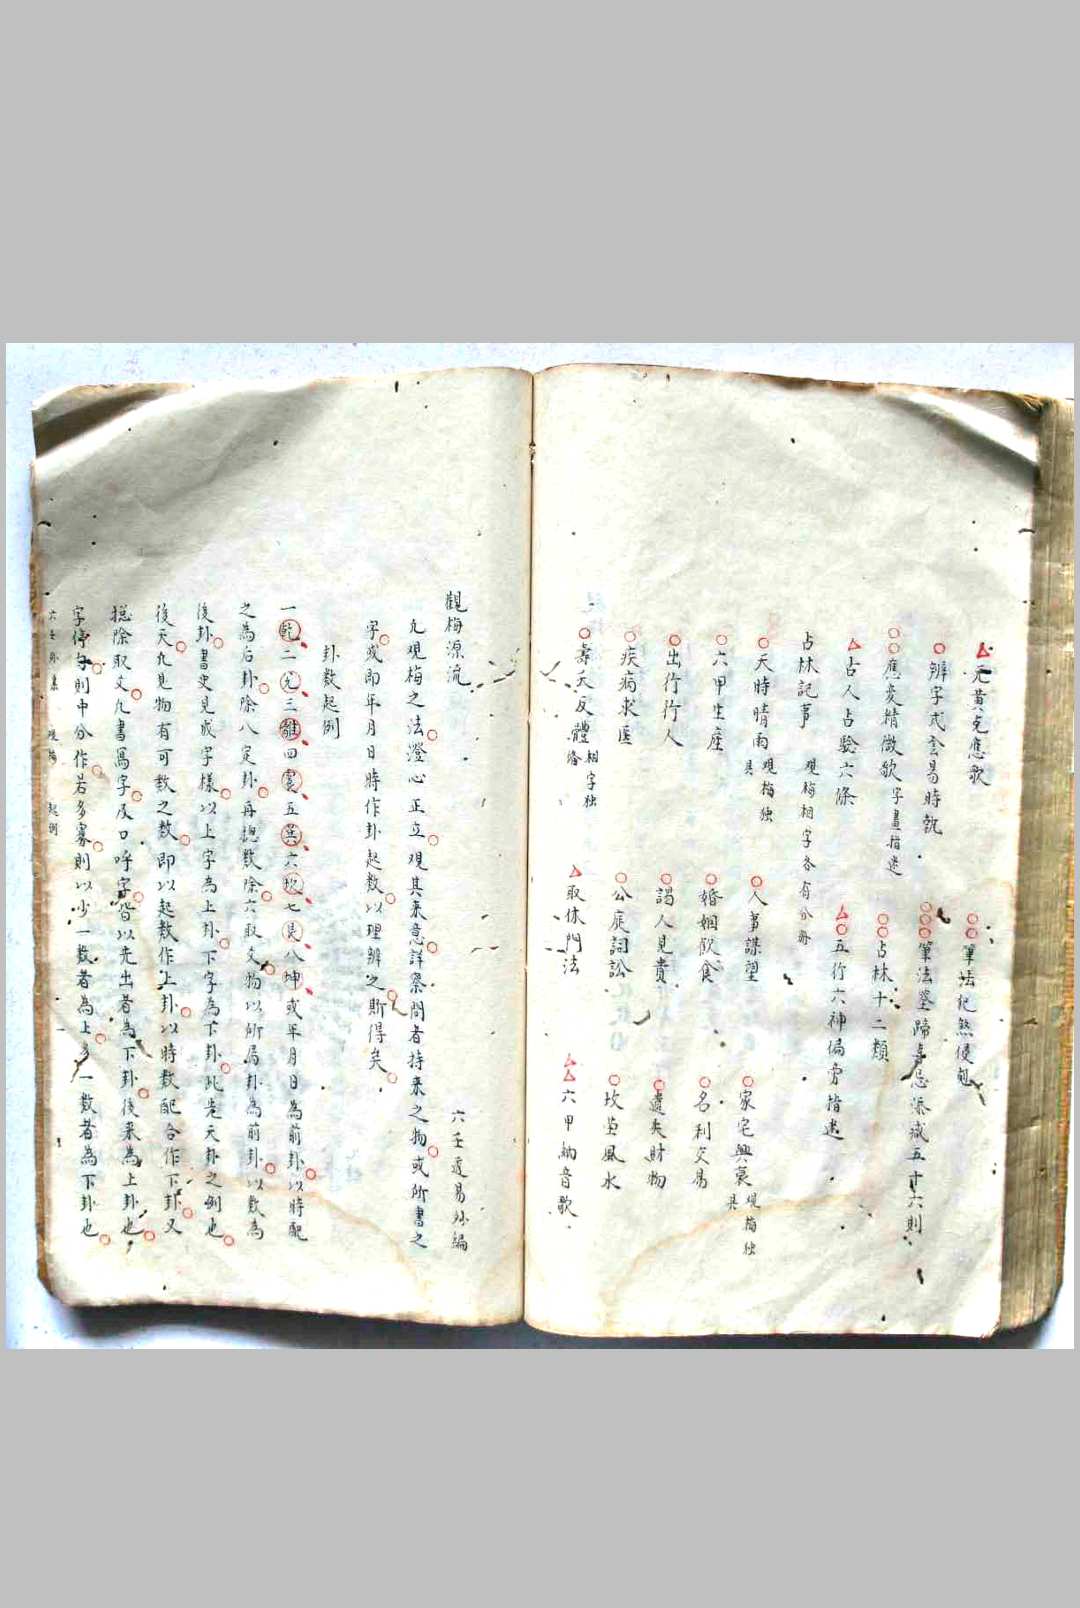 元黃克應歌　筆法犯煞侵尅
辨字式玄易時執　筆法筌蹄喜忌派藏五十六則
應变精微歌字畫指迷　占林十二類
占人占驗六條　五行六神偏旁指迷
占林記事　观梅相字各有分冊
天時晴雨观梅独具　人事謀望　家宅興衰观梅独具
六甲生產　婚姻飲食　名利交易
出行行人　謁人見貴　遺失財物
疾病求医　公庭詞訟　坟茔風水
壽夭反體相字独俻　取休門法　六甲納音歌
觀梅源流　六壬遁易外編
凢观梅之法澄心正立观其来意詳察問者持来之物或所書之
字或即年月日時作卦起数以理辨之斯得矣
卦数起例
一乾二兑三離四震五巽六坎七艮八坤或年月日為前卦以時配
之為后卦除八定卦再總数除六取爻物以所居卦為前卦以数為
後卦書史見成字樣以上字為上卦下字為下卦此先天卦之例也
後天凢見物有可数之数即以起数作上卦以時数配合作下卦又
捴除取爻凢書寫字及口呼字皆以先出者為下卦後来為上卦也
字停匀則中分作若多寡則以少一数者為上多一数者為下卦也
六壬外集　观梅　起例